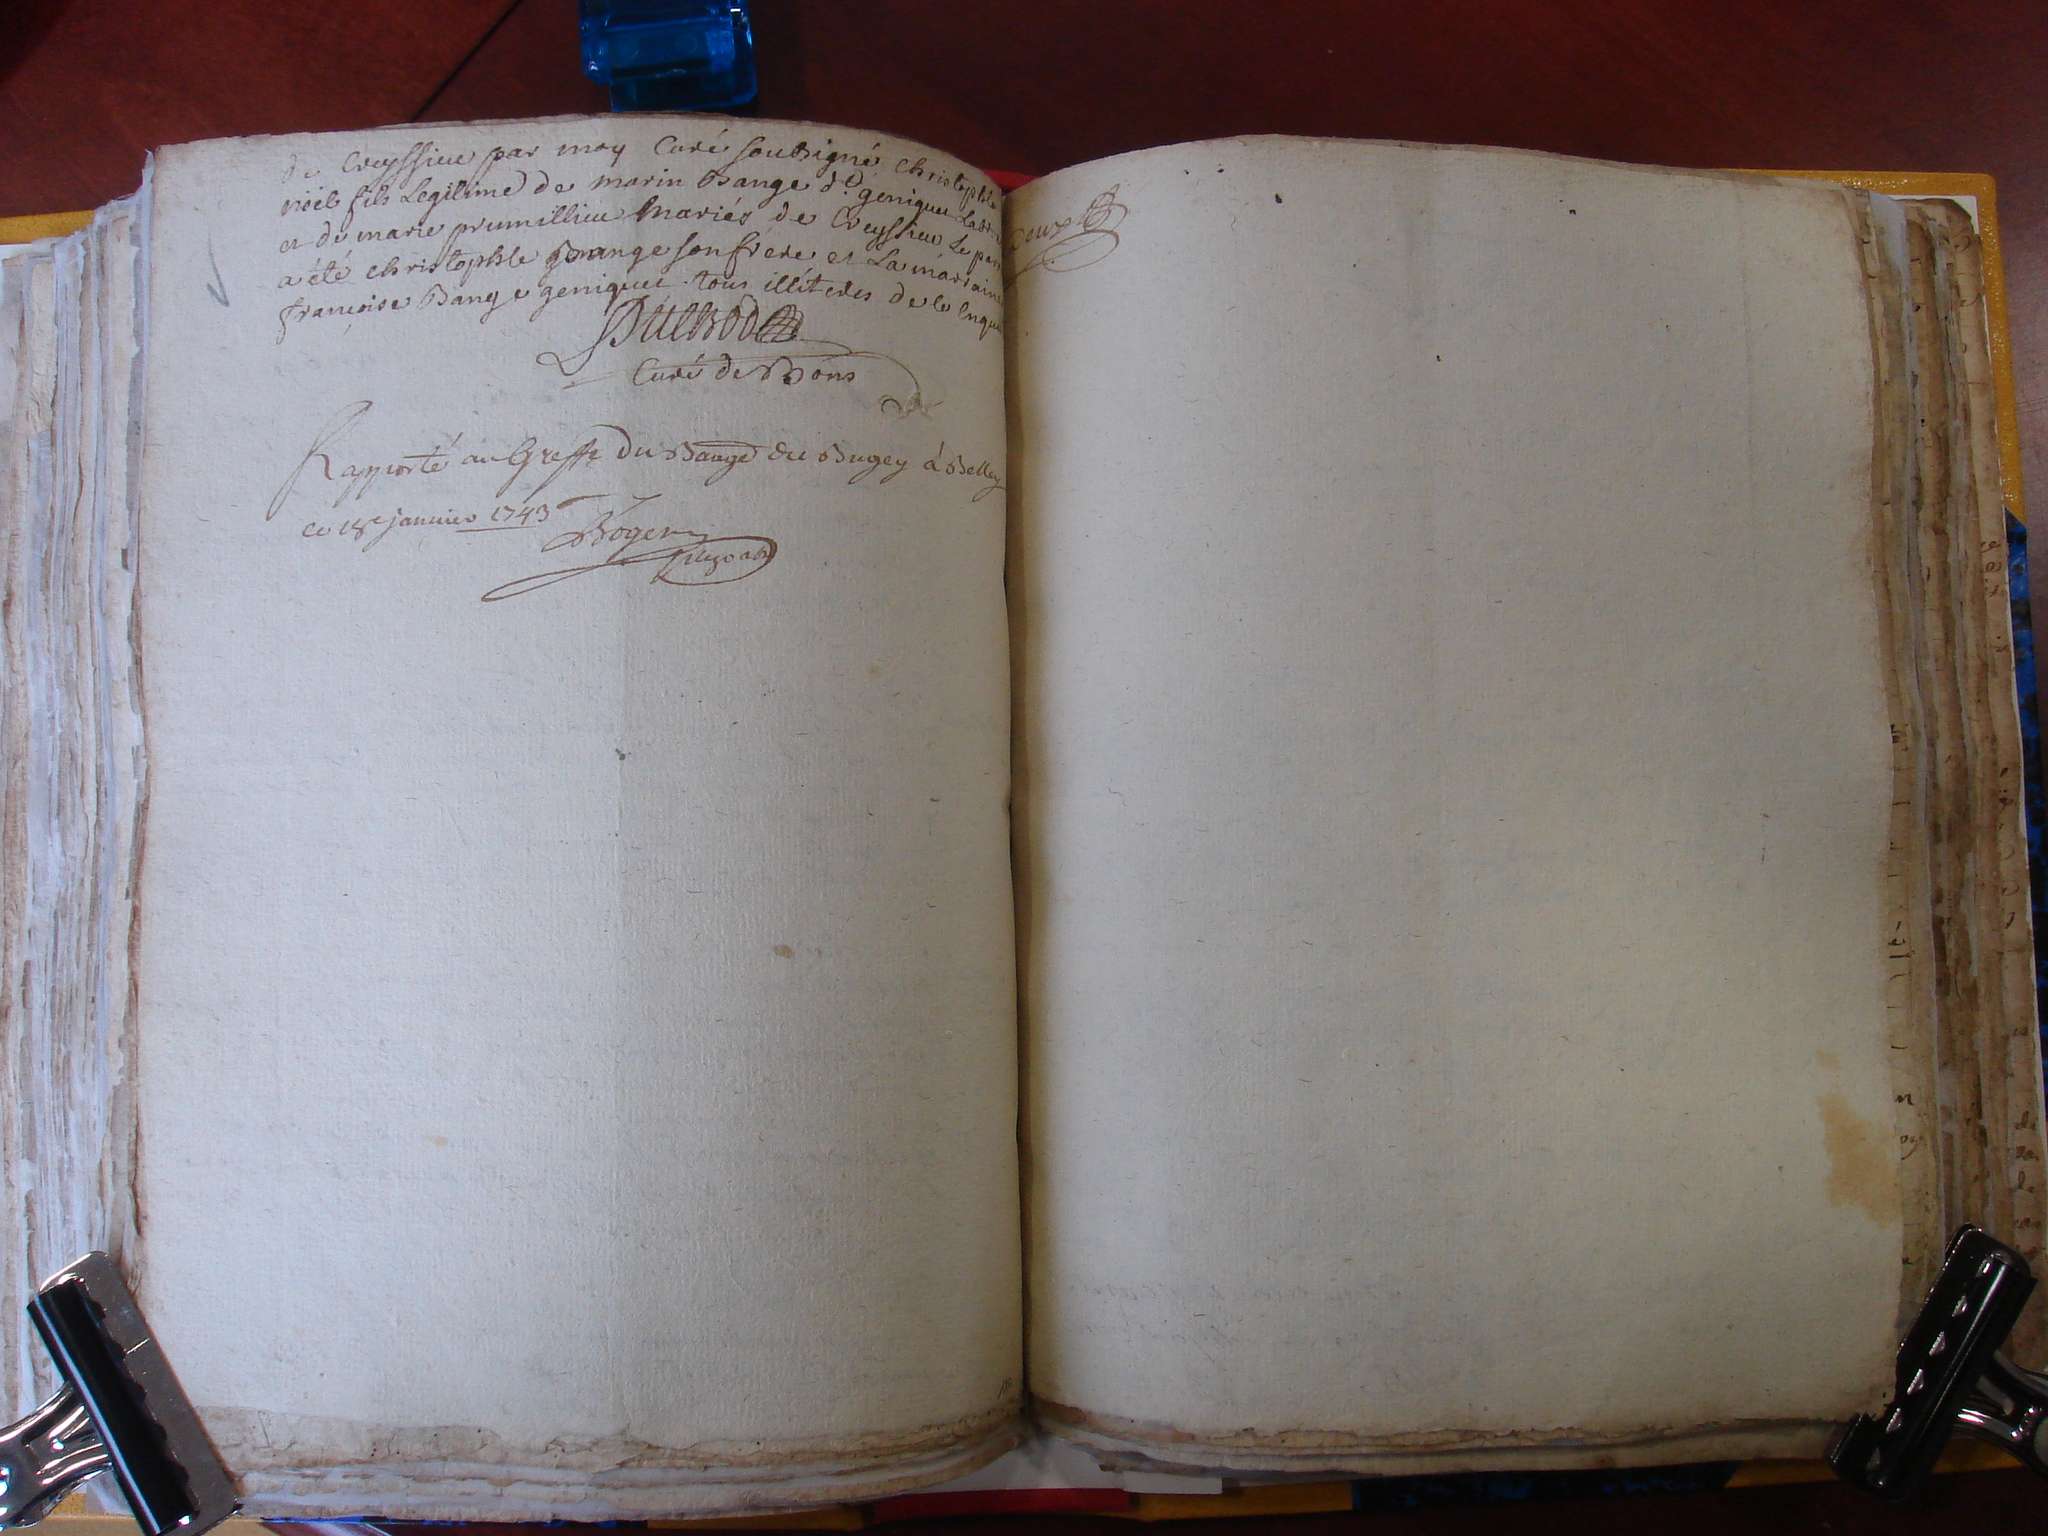 de Creyssieu par moy Curé soussigné christophle
nöel fils Legitime de marin Bange dit geniquet Labr
et de marie prumillieu Mariés de Creyssieu Le parr
a été christophle Bange son frere et La marraine
francoise Bange geniquet tous illiteres de ce enquis
Duclrod
Curé de Bons
Rapporté au Greffe du Baage du Bugey à Belley
ce 18e janvier 1743
Boger
deux